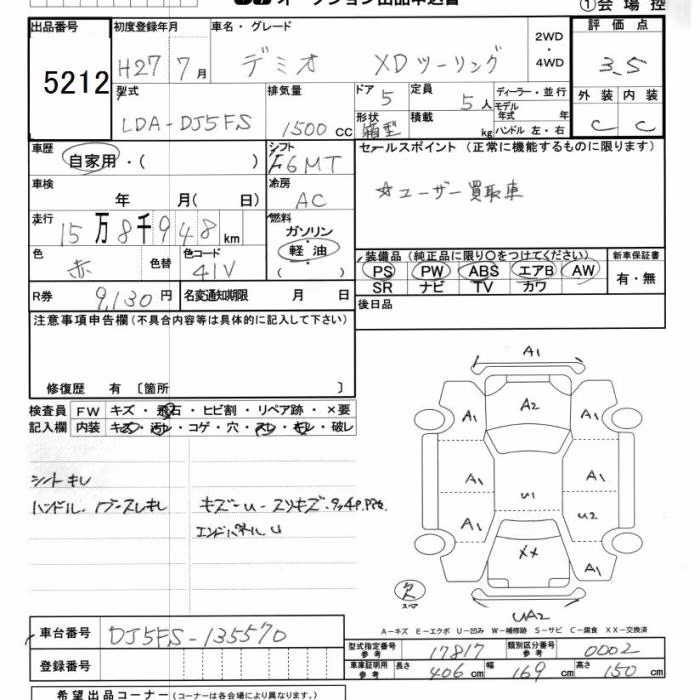 オークション出品申込書
①会場控
出品番号
5212
初度登録年月
H27 7月
車名・グレード
デミオ XDツーリング
2WD
・
4WD
評価点
3.5
型式
LDA-DJ5FS
排気量
1500 cc
ドア 5
形状 箱型
定員 5人
積載 kg
ディーラー・並行
モデル年式 年
ハンドル 左・右
外装 内装
C C
車歴
自家用・( )
シフト
F6MT
セールスポイント (正常に機能するものに限ります)
☆ユーザー買取車
車検
年 月( 日)
冷房
AC
走行
15万8千948km
燃料
ガソリン
・
軽油
( )
色
赤
色替
色コード
41V
装備品 (純正品に限り○をつけてください)
PS PW ABS エアB AW
SR ナビ TV カワ
新車保証書
有・無
R券
9,130円
名変通知期限 月 日
後日品
注意事項申告欄(不具合内容等は具体的に記入して下さい)
修復歴 有 〔箇所 〕
検査員記入欄
FW キズ・飛石・ヒビ割・リペア跡・×要
内装 キズ・汚れ・コゲ・穴・スレ・キレ・破レ
シートキレ
キズ-U-スリキズ
エンドパネルU
A1
A2
A1 A1
A1 A1
U1
A1 U2
XX
A1
欠
スペア
UA2
A-キズ E-エクボ U-凹み W-補修跡 S-サビ C-腐食 XX-交換済
車台番号 DJ5FS-135570
登録番号
型式指定番号 参考 17817
類別区分番号 参考 0002
車庫証明用 参考 長さ 406cm 幅 169cm 高さ 150cm
希望出品コーナー (コーナーは各会場により異なります。)